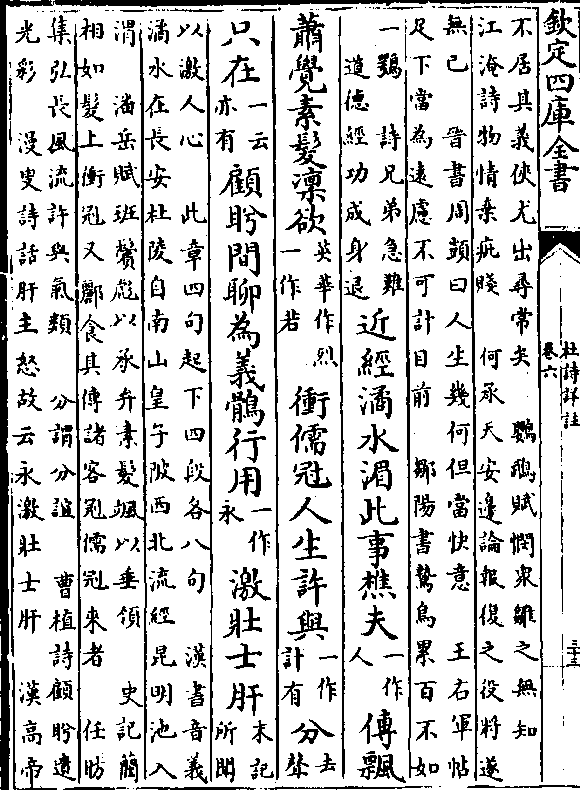 欽定四庫全書
杜詩詳註
卷六
不居其義俠尤出尋常矣　鸚鵡賦憫衆雛之無知
江淹詩物情棄疵賤　何承天安邊論報復之役將遂
無已　晉書周顗曰人生幾何但當快意　王右軍帖
足下當為遠慮不可計目前　鄒陽書鷙鳥累百不如
一鶚　詩兄弟急難
道德經功成身退
近經潏水湄此事樵夫一作人傳飄
蕭覺素髮凛欲英華作烈一作若衝儒冠人生許與一作計有分去聲
只在一云亦有顧盼間聊為義鶻行用一作永激壯士肝末記所聞
以激人心　此章四句起下四段各八句　漢書音義
潏水在長安杜陵自南山皇子陂西北流經昆明池入
渭　潘岳賦班鬢彪以承弁素髮颯以垂領　史記藺
相如髮上衝冠又酈食其傳諸客冠儒冠來者　任昉
集弘長風流許與氣類　分謂分誼　曹植詩顧盼遺
光彩　漫叟詩話肝主怒故云永激壯士肝　漢高帝